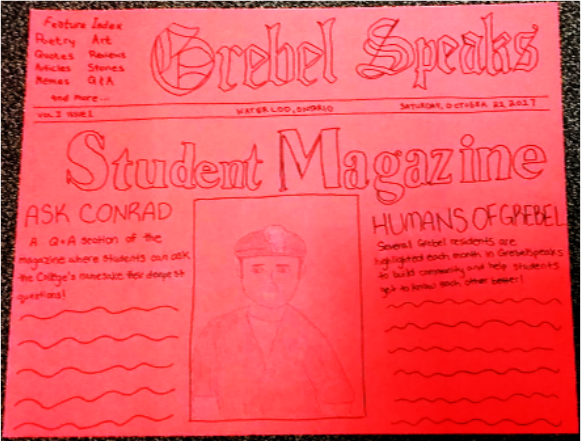 Feature Index
Poetry Art
Quotes Reviews
Articles Stories
Memes Q&A
and more...
Grebel Speaks
VOL. I ISSUE I
WATERLOO, ONTARIO
SATURDAY, OCTOBER 21, 2017
Student Magazine
ASK CONRAD
A Q&A section of the
magazine where students can ask
the College's namesake their deepest
questions!
HUMANS OF GREBEL
Several Grebel residents are
highlighted each month in GrebelSpeaks
to build community and help students
get to know each other better!